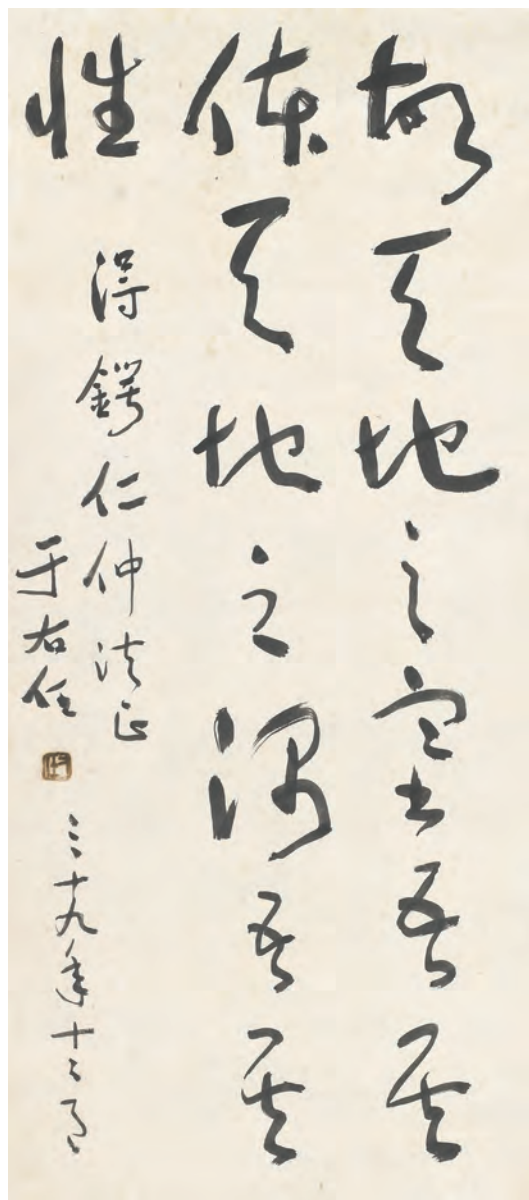 故天地之塞吾其
体天地之帥吾其
性
得鍔仁仲法正
于右任
三十九年十二月